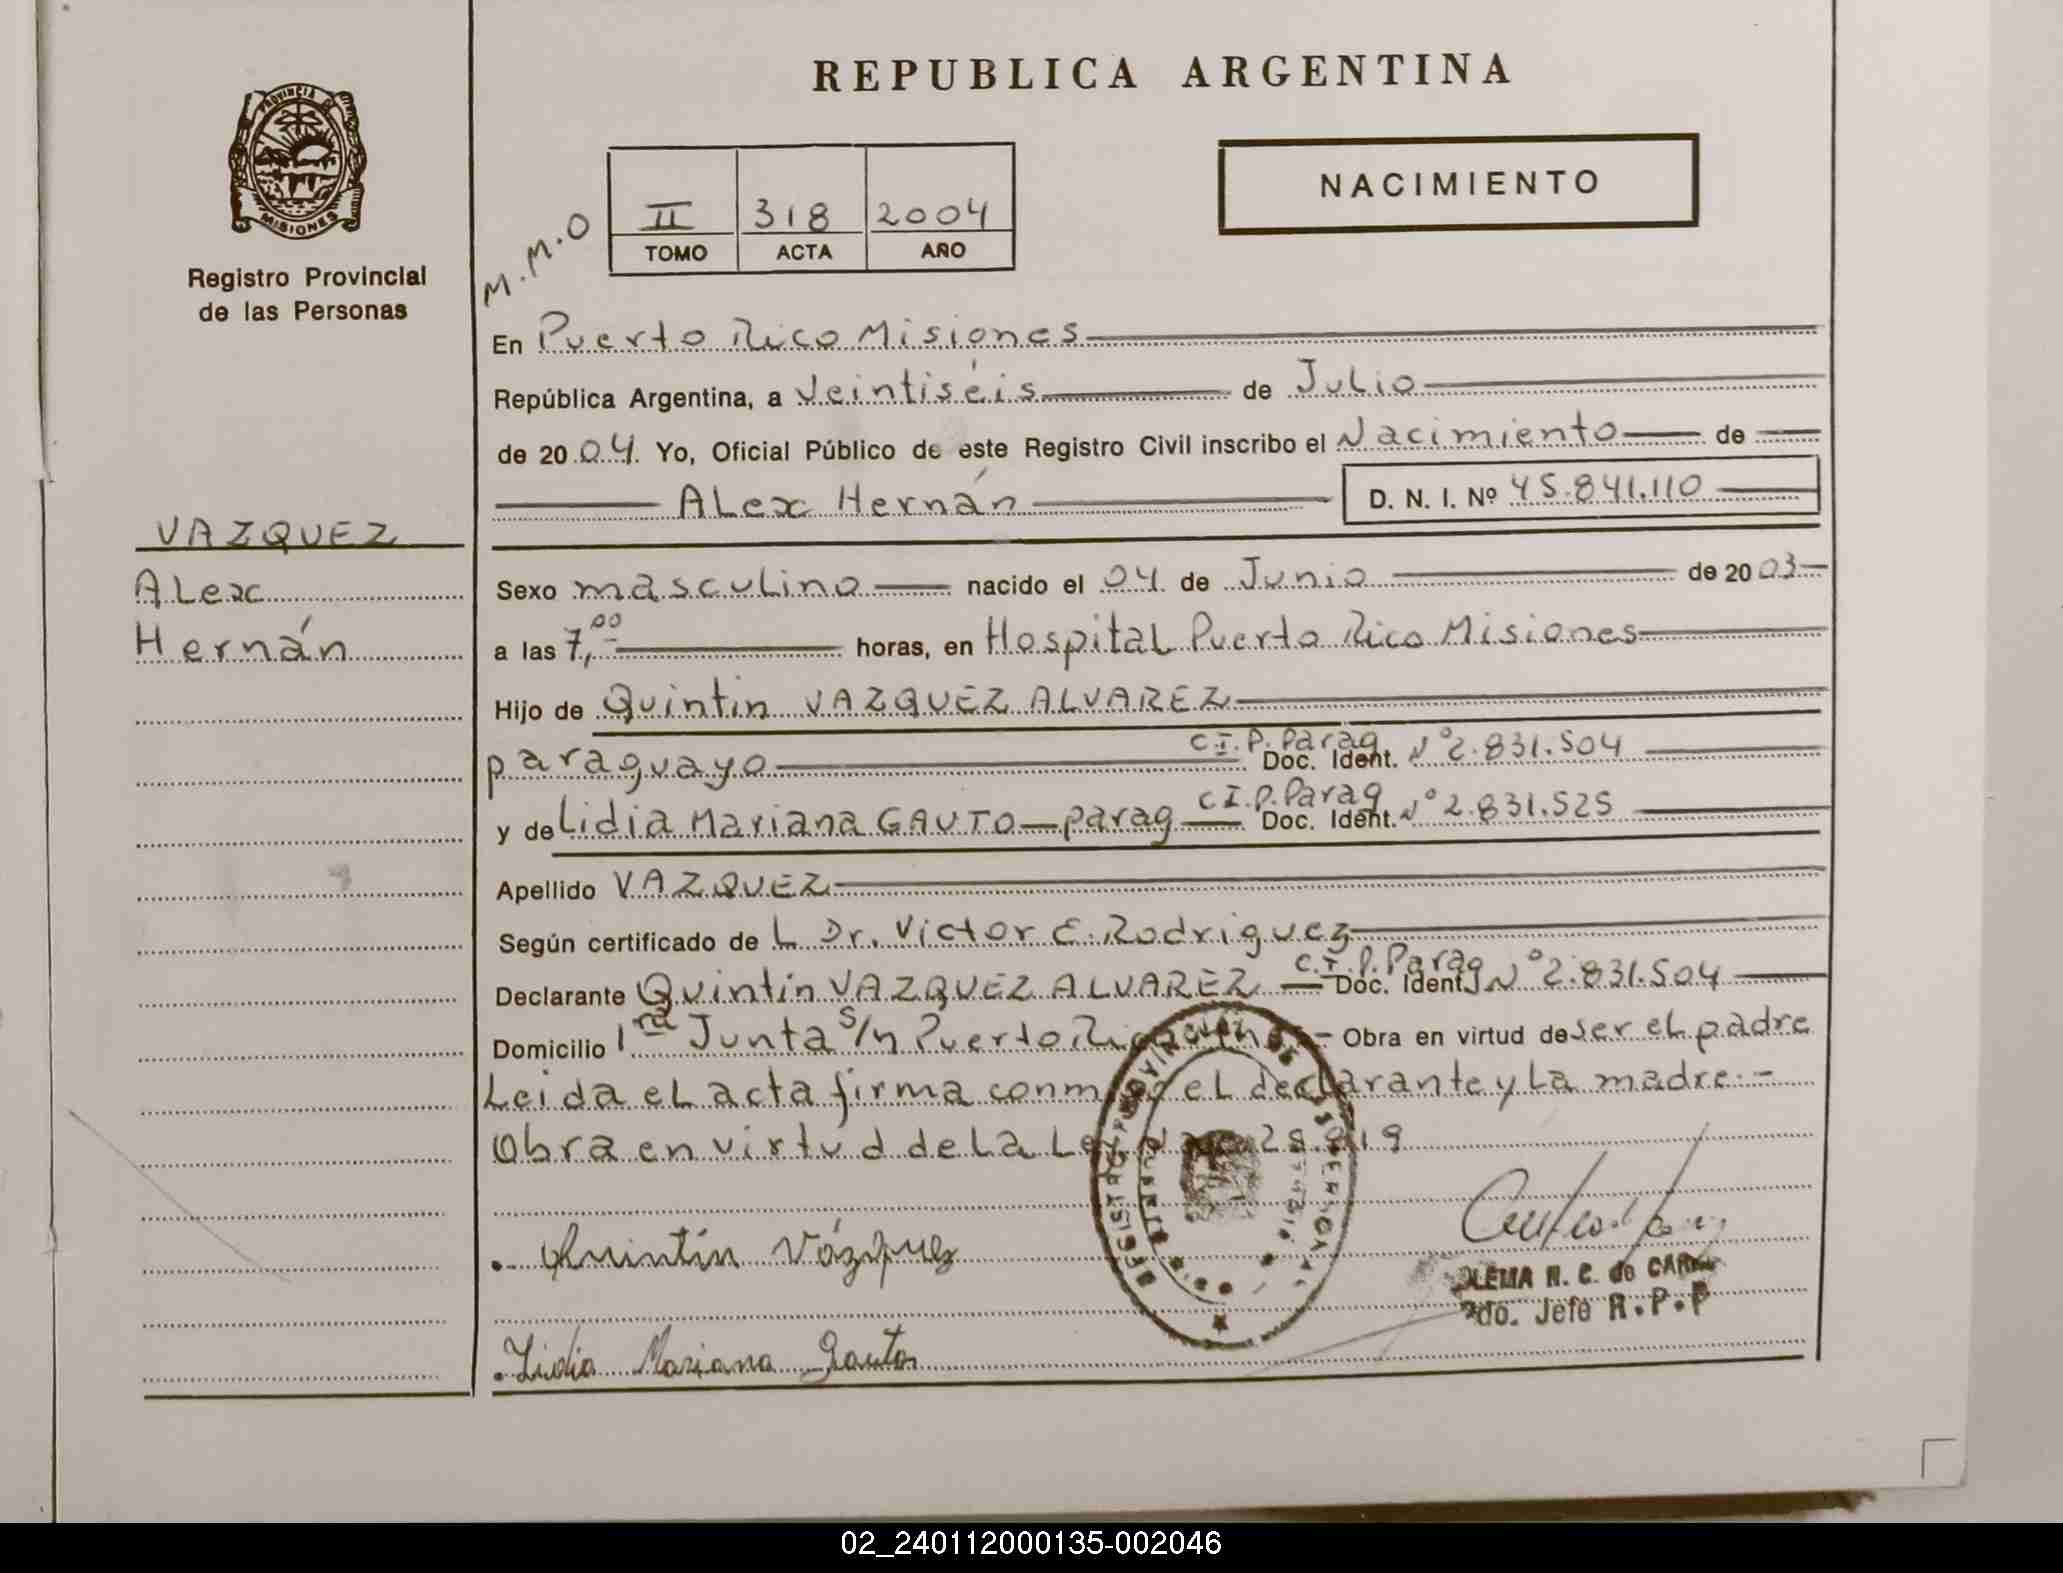 REPUBLICA ARGENTINA
PROVINCIA
MISIONES
Registro Provincial
de las Personas
NACIMIENTO
M.M.O
II 318 2004
TOMO ACTA AÑO
En Puerto Rico Misiones
República Argentina, a Veintiséis de Julio
de 2004. Yo, Oficial Público de este Registro Civil inscribo el Nacimiento de
Alex Hernán D. N. I. Nº 45.841.110
VAZQUEZ
Alex
Hernán
Sexo masculino nacido el 04 de Junio de 2003
a las 7,00 horas, en Hospital Puerto Rico Misiones
Hijo de Quintín VAZQUEZ ALVAREZ
paraguayo C.I.P. Parag Doc. Ident. Nº 2.831.504
y de Lidia Mariana GAUTO parag C.I.P. Parag Doc. Ident. Nº 2.831.525
Apellido VAZQUEZ
Según certificado de L Dr. Victor E. Rodriguez
Declarante Quintín VAZQUEZ ALVAREZ C.I.P. Parag Doc. Ident. Nº 2.831.504
Domicilio 1ra Junta S/n Puerto Rico Obra en virtud de ser el padre
Leida el acta firma el declarante y la madre.-
Obra en virtud de la Ley
Quintín Vázquez
N. C. de
2do. Jefe R.P.P
Lidia Mariana Gauto
02_240112000135-002046